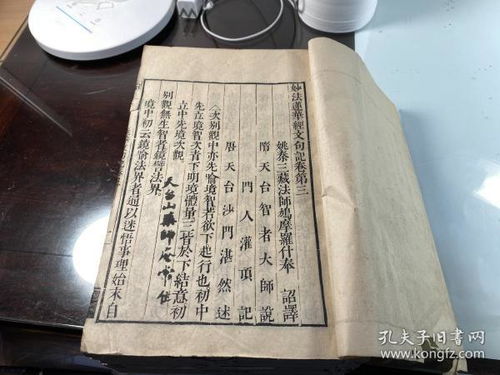 妙法蓮華經文句記卷第三
姚秦三藏法師鳩摩羅什奉 詔譯
隋天台智者大師說
門人灌頂記
唐天台沙門湛然述
次別觀中亦先喻境智者欲下起行也初中
先立境智次者下明境體量三皆於下結意初
立中先境次觀
別觀無生智者鏡譬法界
天台山藥師庵常住
境中初云鏡喻法界者通以迷悟事理始末自
孔夫子旧书网
www.kongfz.com